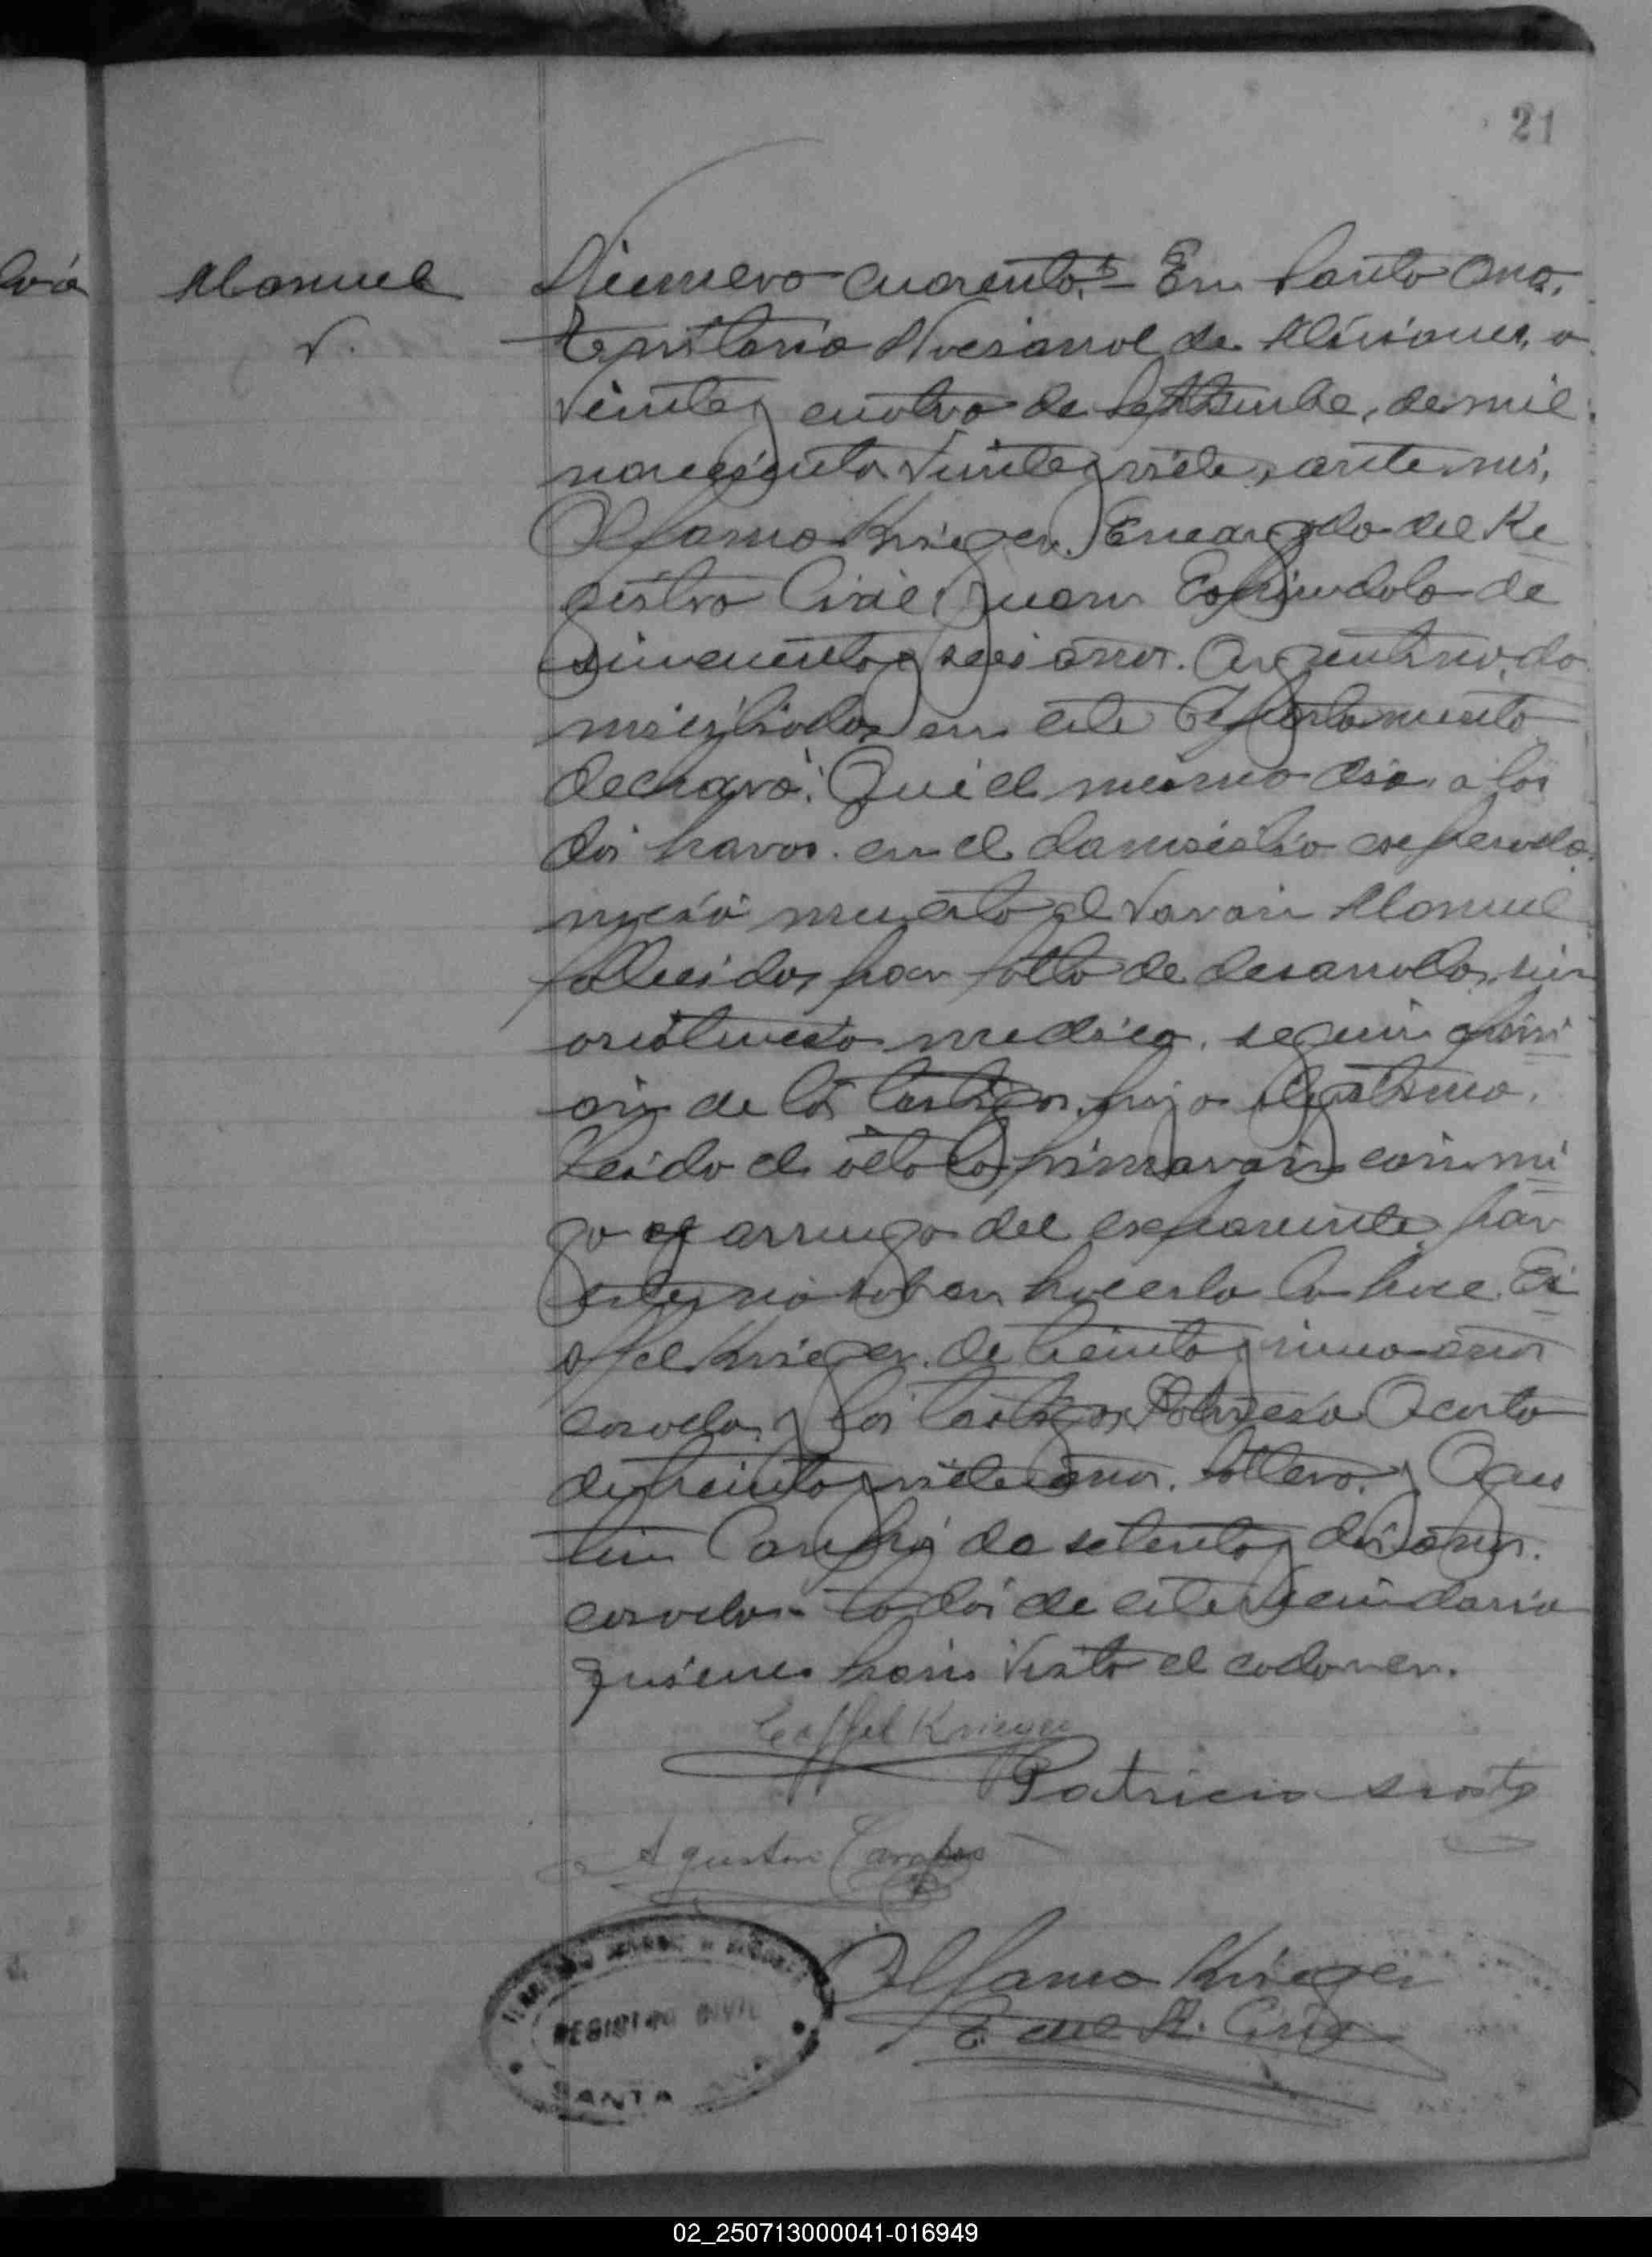 21
Manuel
V.
Número cuarenta. En Santa Ana,
territorio Nacional de Misiones, a
veinte y cuatro de Septiembre, de mil
novecientos veinte y siete, ante mi,
Krieger. Encargado del Re
gistro Civil Juan Espindola de
sincuenta y seis años. Argentino, do
miciliado, en este Departamento
declaró: Que el mismo dia a las
dos horas. en el domicilio
nació muerto el varon Manuel
fallecido, por falta de desarrollo, sin
asistencia medica. segun opini
on de los testigos, hijo
Leido el acta la firmaron conmi
go el arruego del exponente por
este no saber hacerlo lo hace
ffel Krieger. de treinta y cinco años
casado, y los testigos, Patricio Acosta
de treinta y siete años. soltero. y Agus
tin de setenta y dos años.
casado. todos de este vecindario
quienes han visto el cadaver.
Krieger
Patricio
Agustin
Krieger
E. del R. Civil
REGISTRO CIVIL
SANTA ANA
02_250713000041-016949